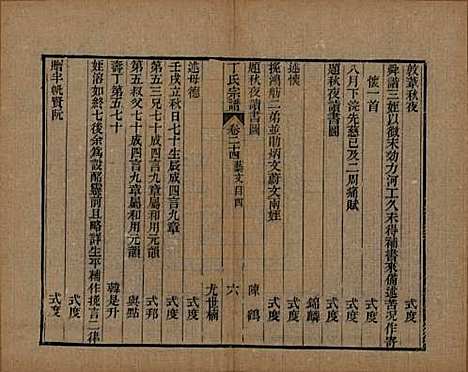 敦葦秋夜 式度
舜諧三姪以微末効力河工久未得補書來備述苦况作寄
懷一首 式度
八月下浣先慈已及二周痛賦 式度
題秋夜讀書圖 錦麟
述懷 式度
挽鴻舫二弟並助炳文蔚文兩姪 式度
題秋夜讀書圖 陳鶴
丁氏宗譜 卷二十四藝文目四 六
述母德 尤世楠
壬戌立秋日七十生辰成四言九章 式度
第五三兄七十成四言九章屬和用元韻 式邦
第五叔父七十成四言九章屬和用元韻 與點
壽丁第五七十 韓是升
姪俗如終七後余為設醮靈前且略詳生平補作挽言二律
式度
贈半帆賢阮 式度